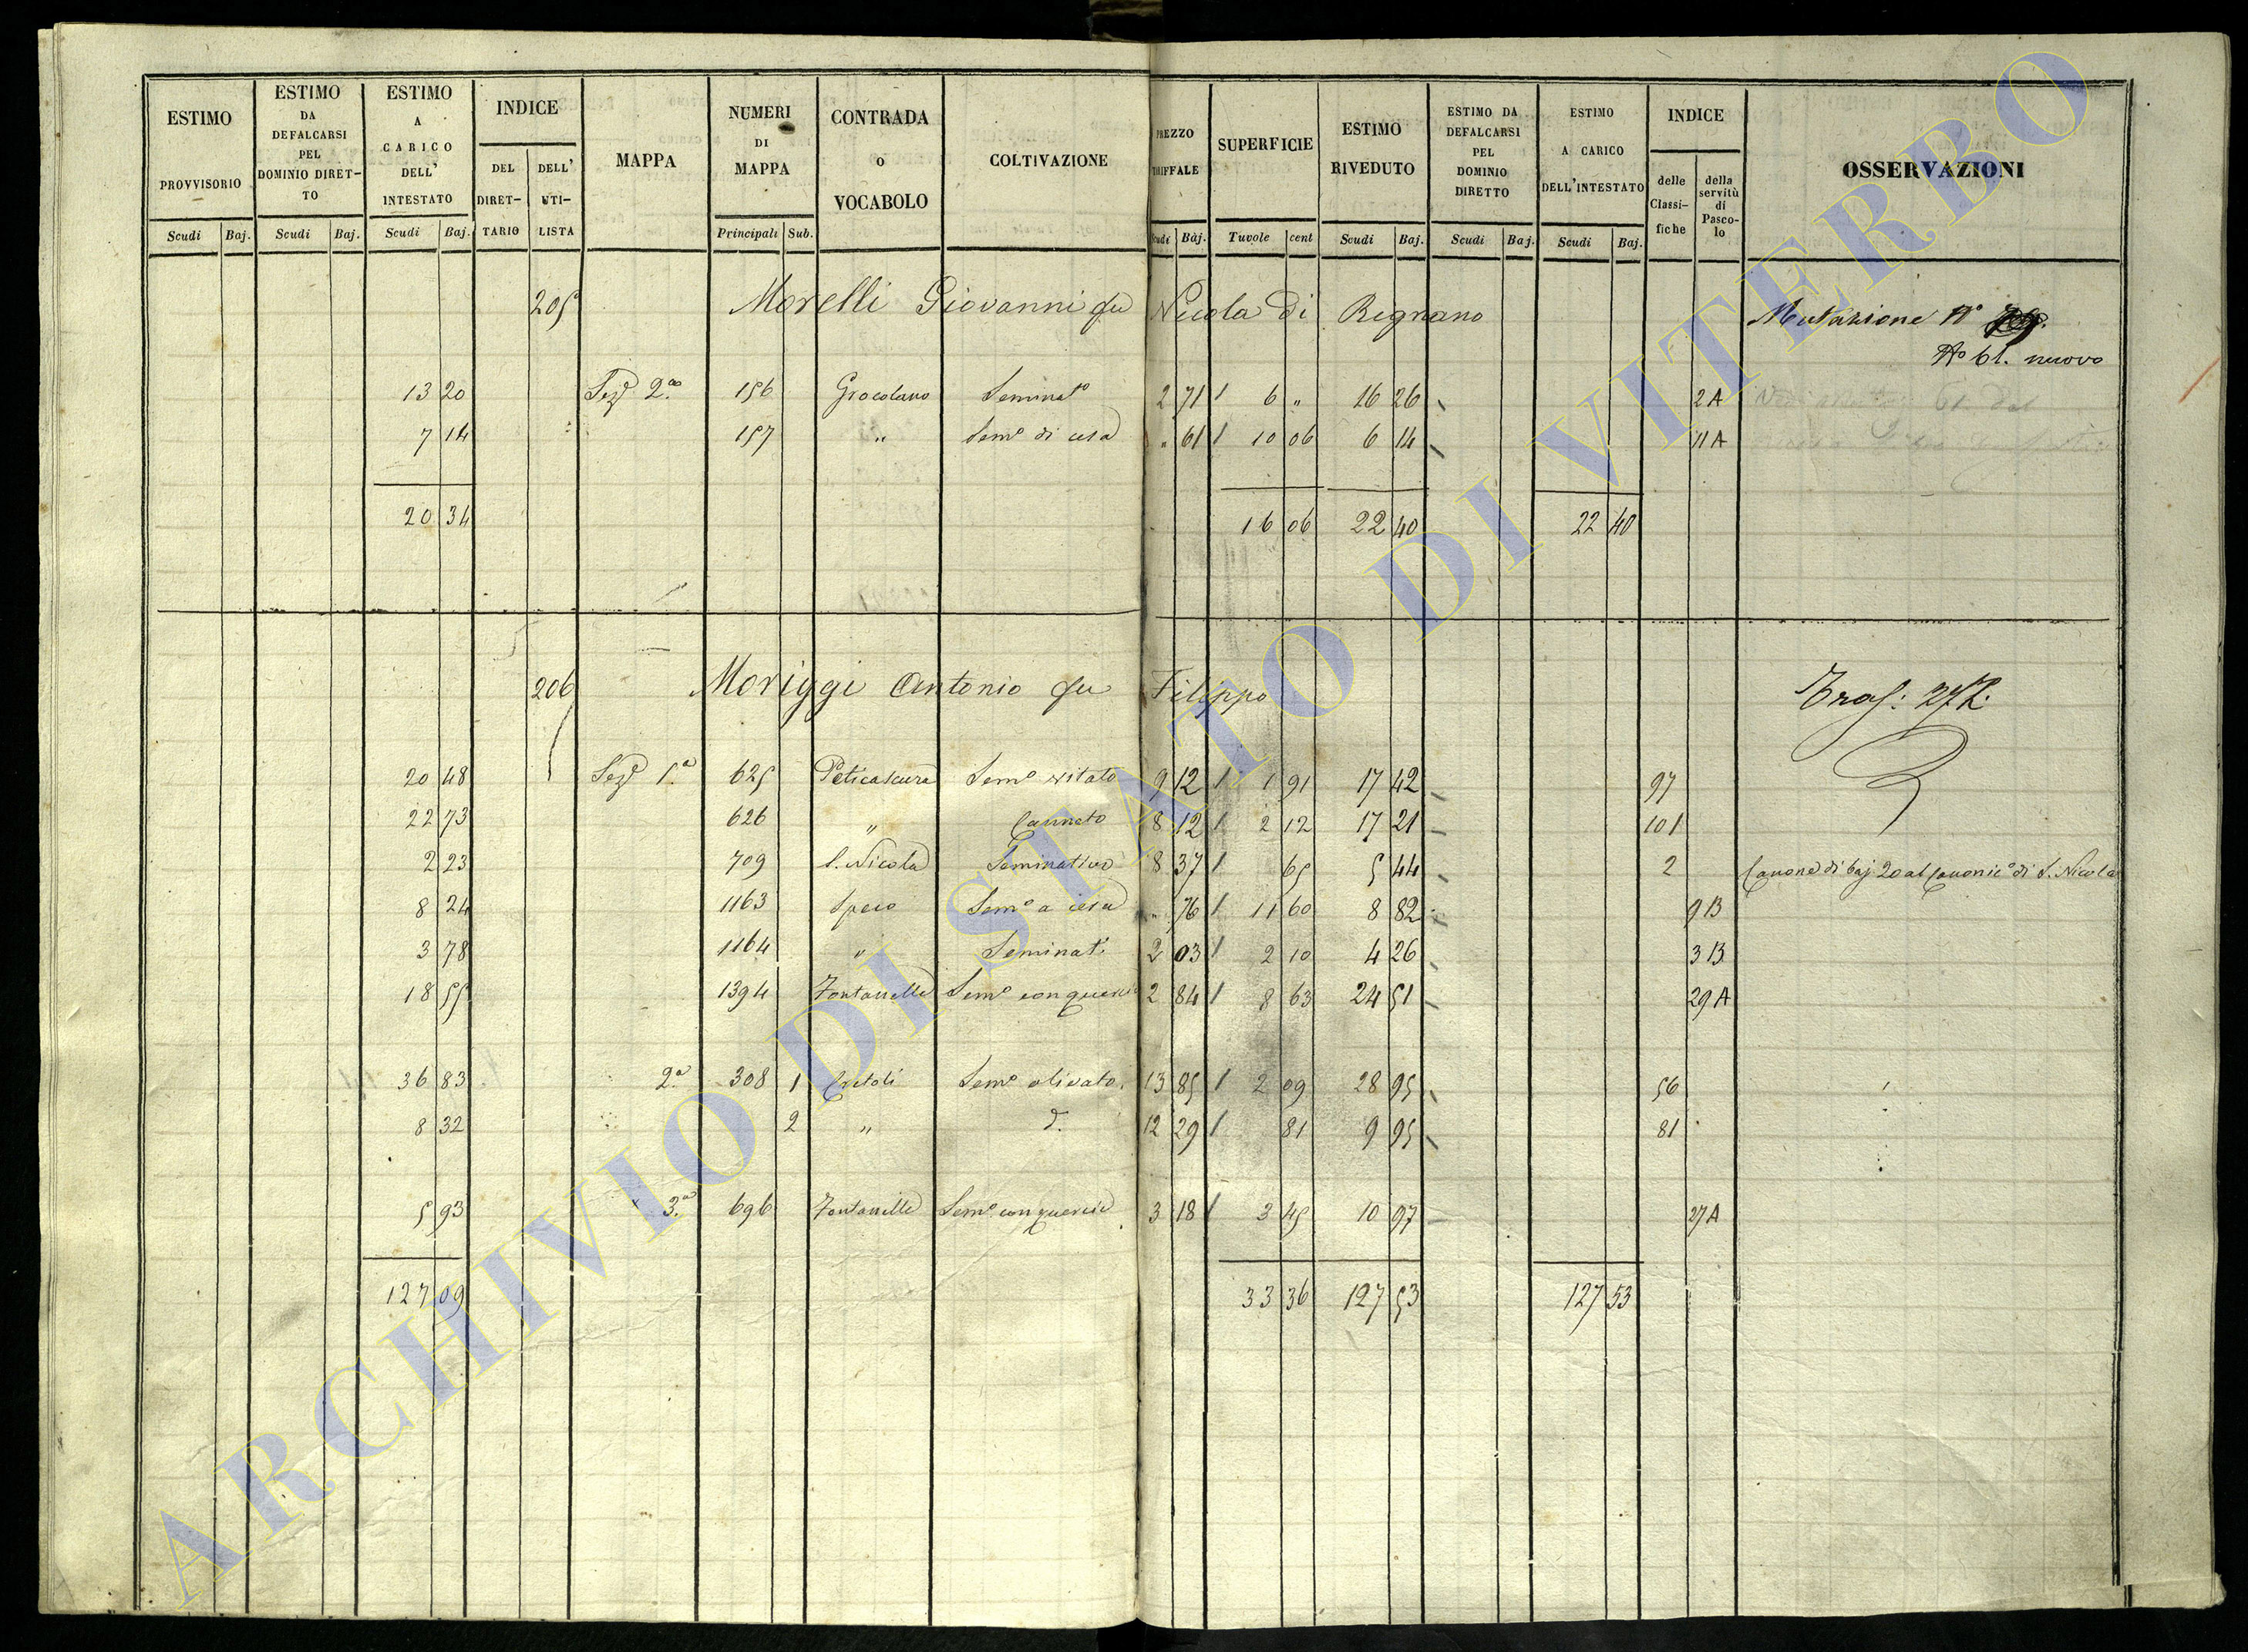 ESTIMO PROVVISORIO Scudi Baj.
ESTIMO DA DEFALCARSI PEL DOMINIO DIRET-TO Scudi Baj.
ESTIMO A CARICO DELL' INTESTATO Scudi Baj.
INDICE DEL DIRET-TARIO DELL' UTI-LISTA
MAPPA
NUMERI DI MAPPA Principali Sub.
CONTRADA O VOCABOLO
COLTIVAZIONE
PREZZO TARIFFALE Scudi Baj.
SUPERFICIE Tavole cent
ESTIMO RIVEDUTO Scudi Baj.
ESTIMO DA DEFALCARSI PEL DOMINIO DIRETTO Scudi Baj.
ESTIMO A CARICO DELL'INTESTATO Scudi Baj.
INDICE delle Classi-fiche della servitù di Pasco-lo
OSSERVAZIONI
205 Morelli Giovanni fu Nicola di Rignano Mutazione N°
N° 61. nuovo
13 20 Sez.e 2.a 156 Grocolano Seminat.o 2 71 6 „ 16 26 2A
7 14 157 „ Sem.o di cesa „ 61 10 06 6 14 11A
20 34 16 06 22 40 22 40
206 Moriggi Antonio fu Filippo Tras: 272.
20 48 Sez.e 1.a 625 Peticascura Sem.o vitato 9 12 1 91 17 42 97
22 73 626 „ Canneto 8 12 2 12 17 21 101
2 23 709 S. Nicola Seminativo 8 37 65 5 44 2 Canone di baj 20 al Canonic.o di S. Nicola
8 24 1163 Speco Sem.o a cesa „ 76 11 60 8 82 9B
3 78 1164 „ Seminat.o 2 03 2 10 4 26 3B
18 55 1394 Fontanelle Sem.o con quercie 2 84 8 63 24 51 29A
36 83 2.a 308 1 Sem.o olivato. 13 85 2 09 28 95 56
8 32 2 „ d. 12 29 81 9 95 81
5 93 3.a 696 Fontanelle Sem.o con quercie 3 18 3 45 10 97 27A
127 09 33 36 127 53 127 53
ARCHIVIO DI STATO DI VITERBO